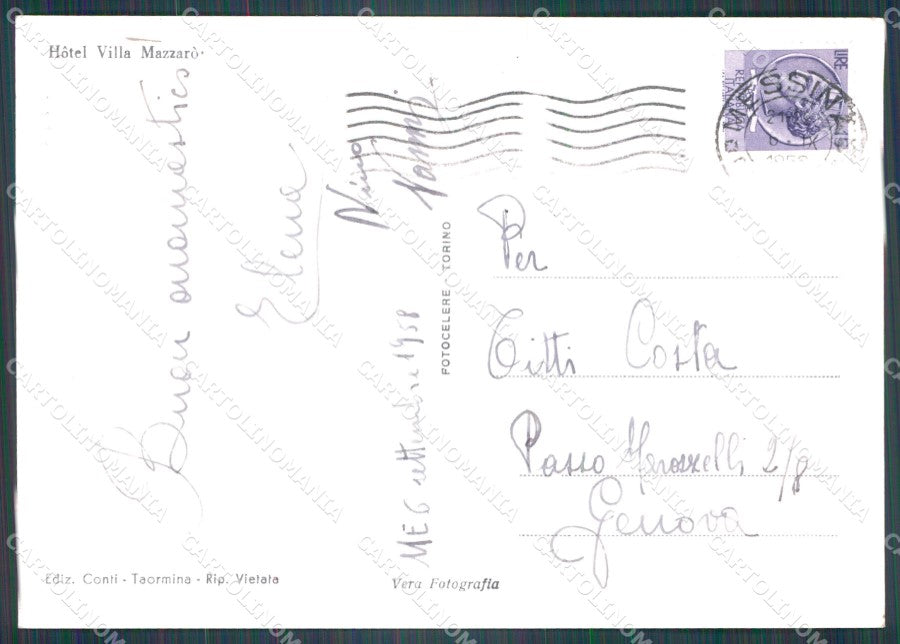 Hôtel Villa Mazzarò
Buon onomastico
Elena
Nanni
ME 6 settembre 1958
FOTOCELERE - TORINO
Per
Titti Costa
Passo
Genova
LIRE
MESSINA
IX
1958
Ediz. Conti - Taormina - Rip. Vietata
Vera Fotografia
CARTOLINOMANIA